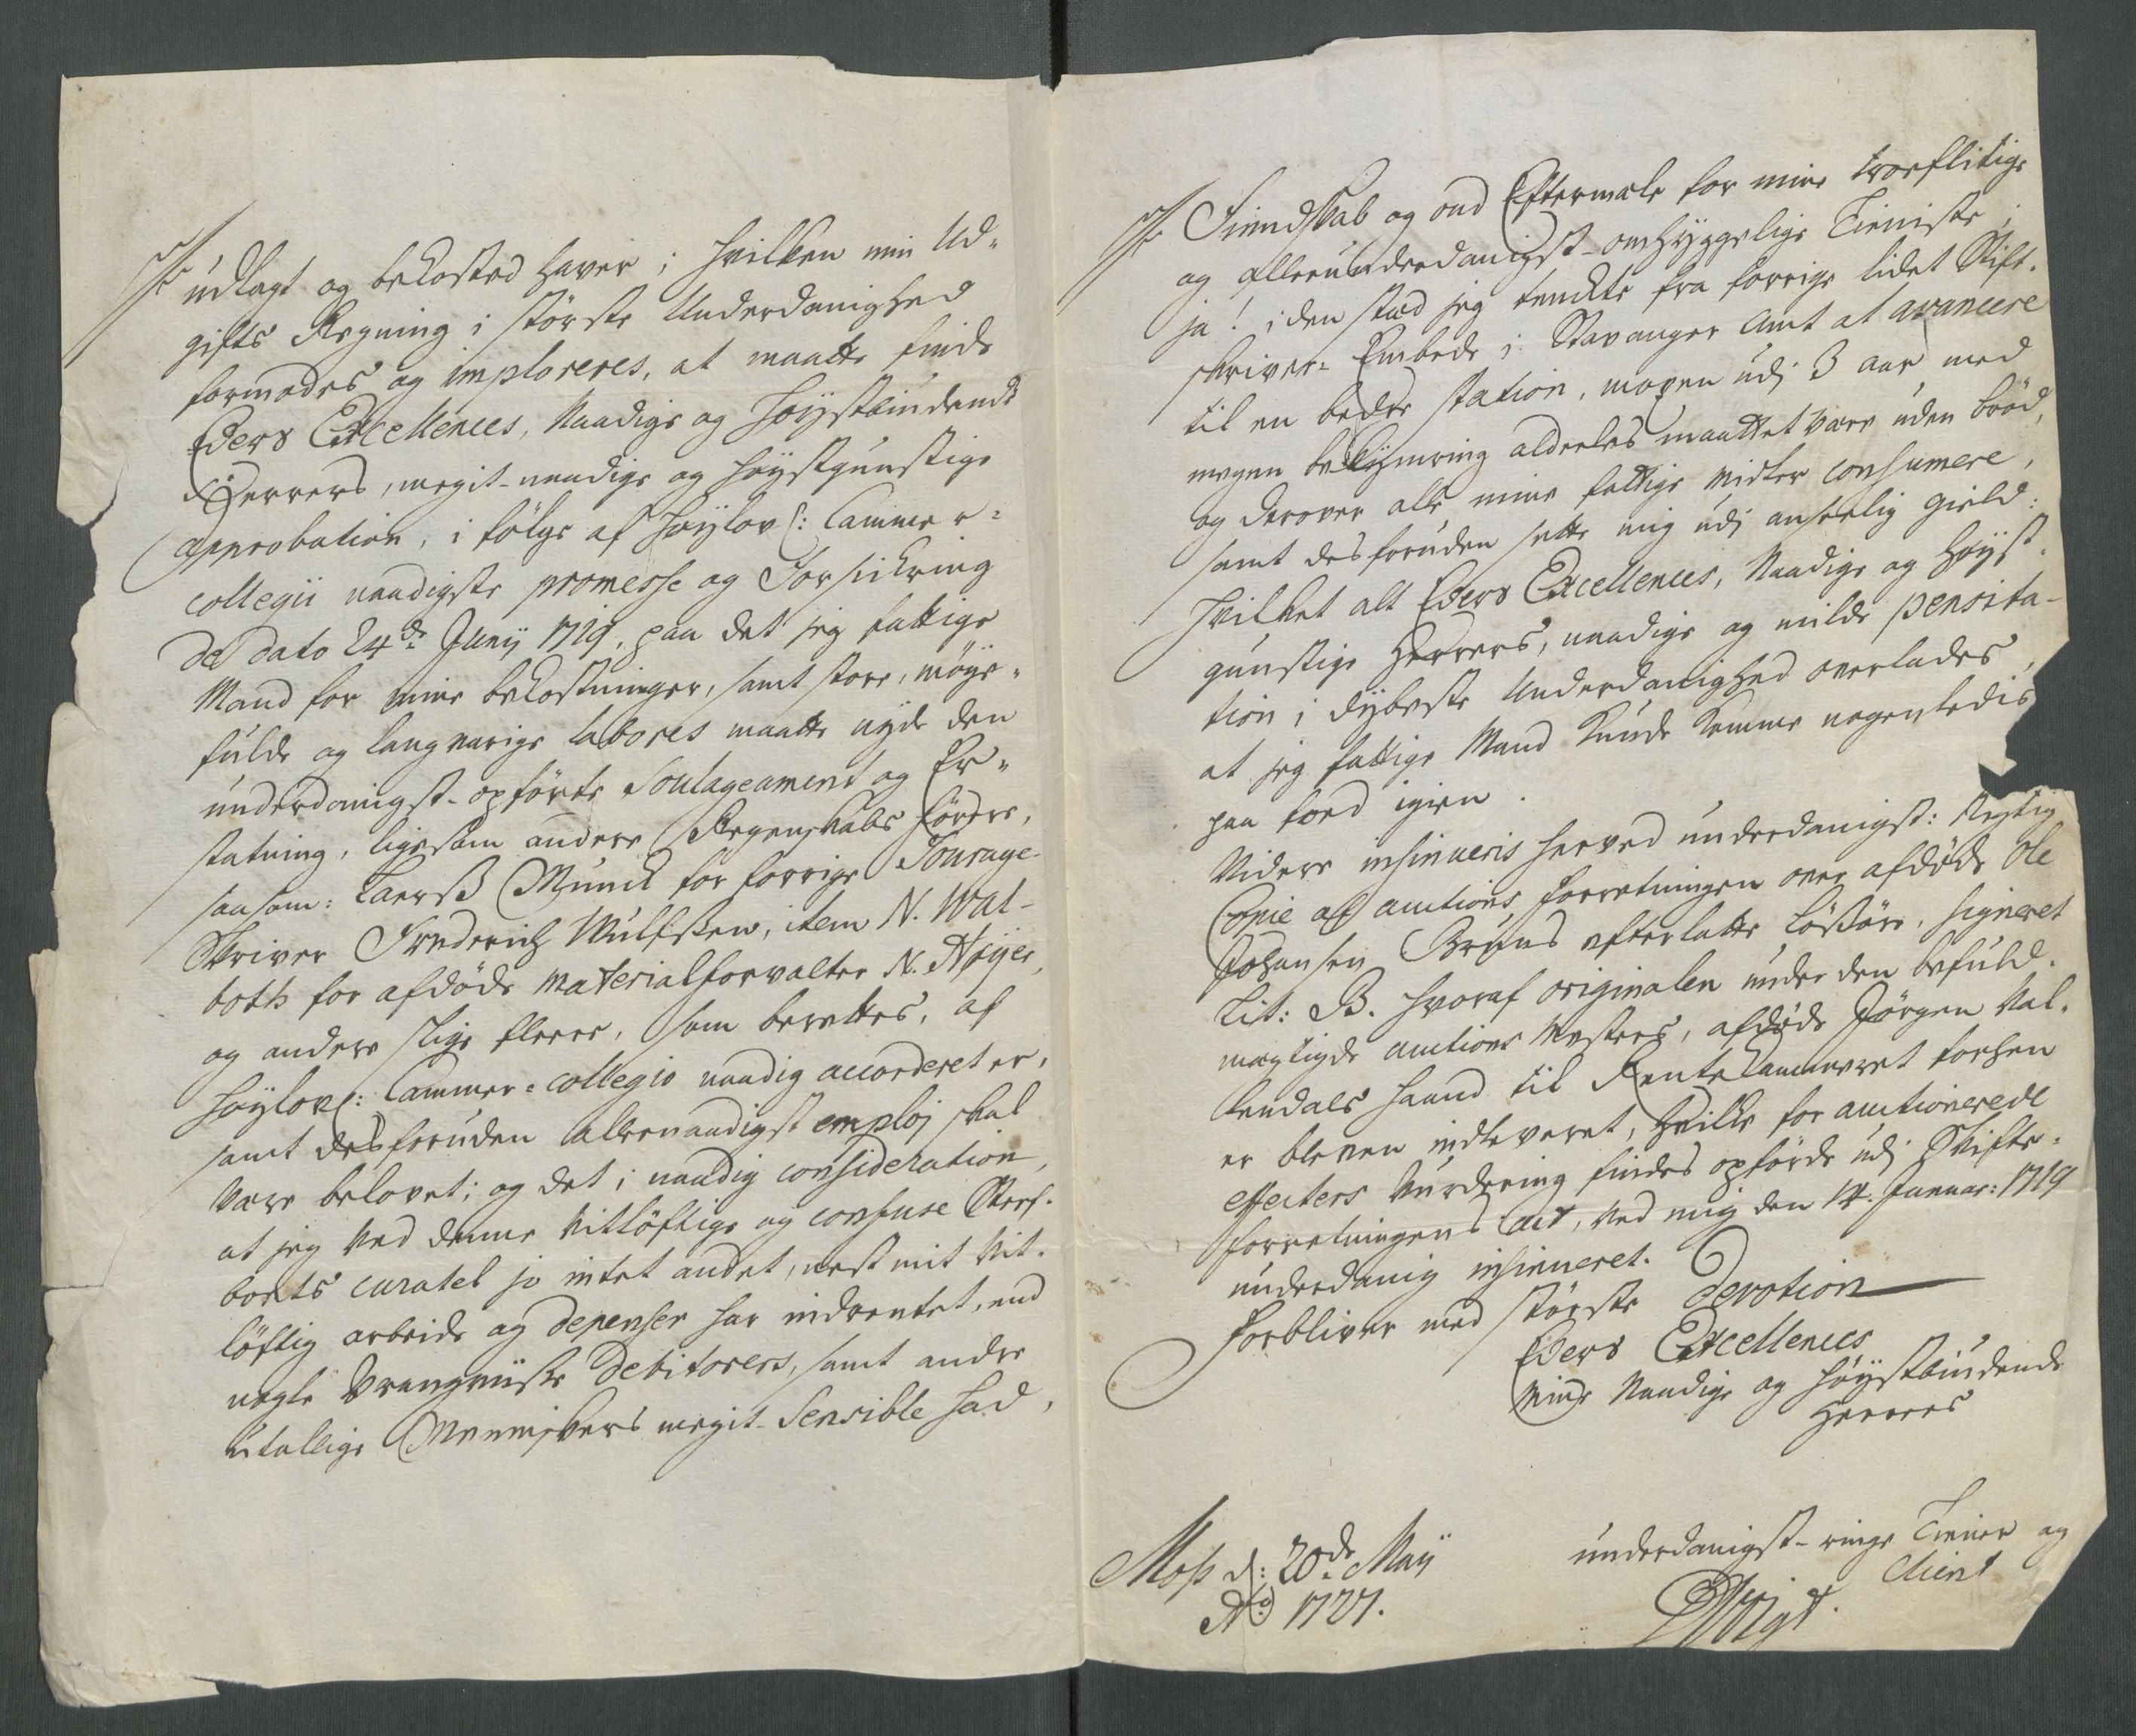 udlagt og bekosted haver; hvilken min Ud-
gifts Regning i störste Underdanighed
formodes og imploreres, at maatte finde
Eders Excellences, Naadige og Höÿstbiudende
Herrers, megit-naadige og höÿstgunstige
approbation, i fölge af Höÿlovl: Cammer-
collegii naadigste promesse og Forsickring
de dato 24de Junij 1719, paa det jeg fattige
Mand for mine bekostninger, samt store, möÿe-
fulde og langvarige labores maatte nÿde den
underdanigst-opförte Soulageament og Er-
statning, ligesom andere Regenskabs förere,
saasom: Laerss Munck for forrige Fourage-
Skriver Frederich Wulfssen, item N. Wal-
both for afdöde materialforvalter N. Höÿer,
og andere slige fleere, som berettes, af
höÿlovl: Cammer-collegio naadig accorderet er,
samt desforuden allernaadigst emploj skal
være belovet; og det i naadig consideration,
at jeg ved denne vitlöftige og confuse Sterf-
boets curatel jo intet andet, nest mit vit-
löftig arbeide og depenser har indventet, end
nogle vrangvüsse Debitorers, samt andre
utallige Menniskers megit-sensible had,
Fiendskab og ond Eftermale for mine troeflitige
og allerunderdanigst-omhÿggelige Tieniste;
ja! i den stæd jeg tenckte fra forrige lidet Skift-
skriver-Embede i Stavanger Amt at avancere
til en bedre station, moxen udj 3 aar med
megen bekÿmring alderles maattet være uden bröd,
og derover alle mine fattige midler consumere,
samt desforuden sætte mig udj anseelig gield:
Hvilket alt Eders Excellences, Naadige og Höÿst-
gunstige Herrers, naadige og milde pensita-
tion i dÿbeste Underdanighed overlades,
at jeg fattige Mand kunde komme nogenledis
paa foed igien.
Videre insinueris herved underdanigst: Rigtig
Copie af auctions forretningen over afdöde Ole
Johansen Bruns efterlatte lössöre, signeret
Lit: B. hvoraf originalen under den befuld-
mægtigde auctions Mesters, afdöde Jörgen Val-
lendals haand til Rentekammeret forhen
er bleven indleveret, hvilke for auctionerede
effecters vurdering findes opförde udj Skifte-
forretningens act, ved mig den 14. Januar: 1719
underdanig insinueret.
Forbliver med störste Devotion
Eders Excellences
Mine Naadige og Höÿstbiudende
Herrers
underdanigst-ringe Tiener og
Client
Moss d: 20de Maÿ
Ao 1727.